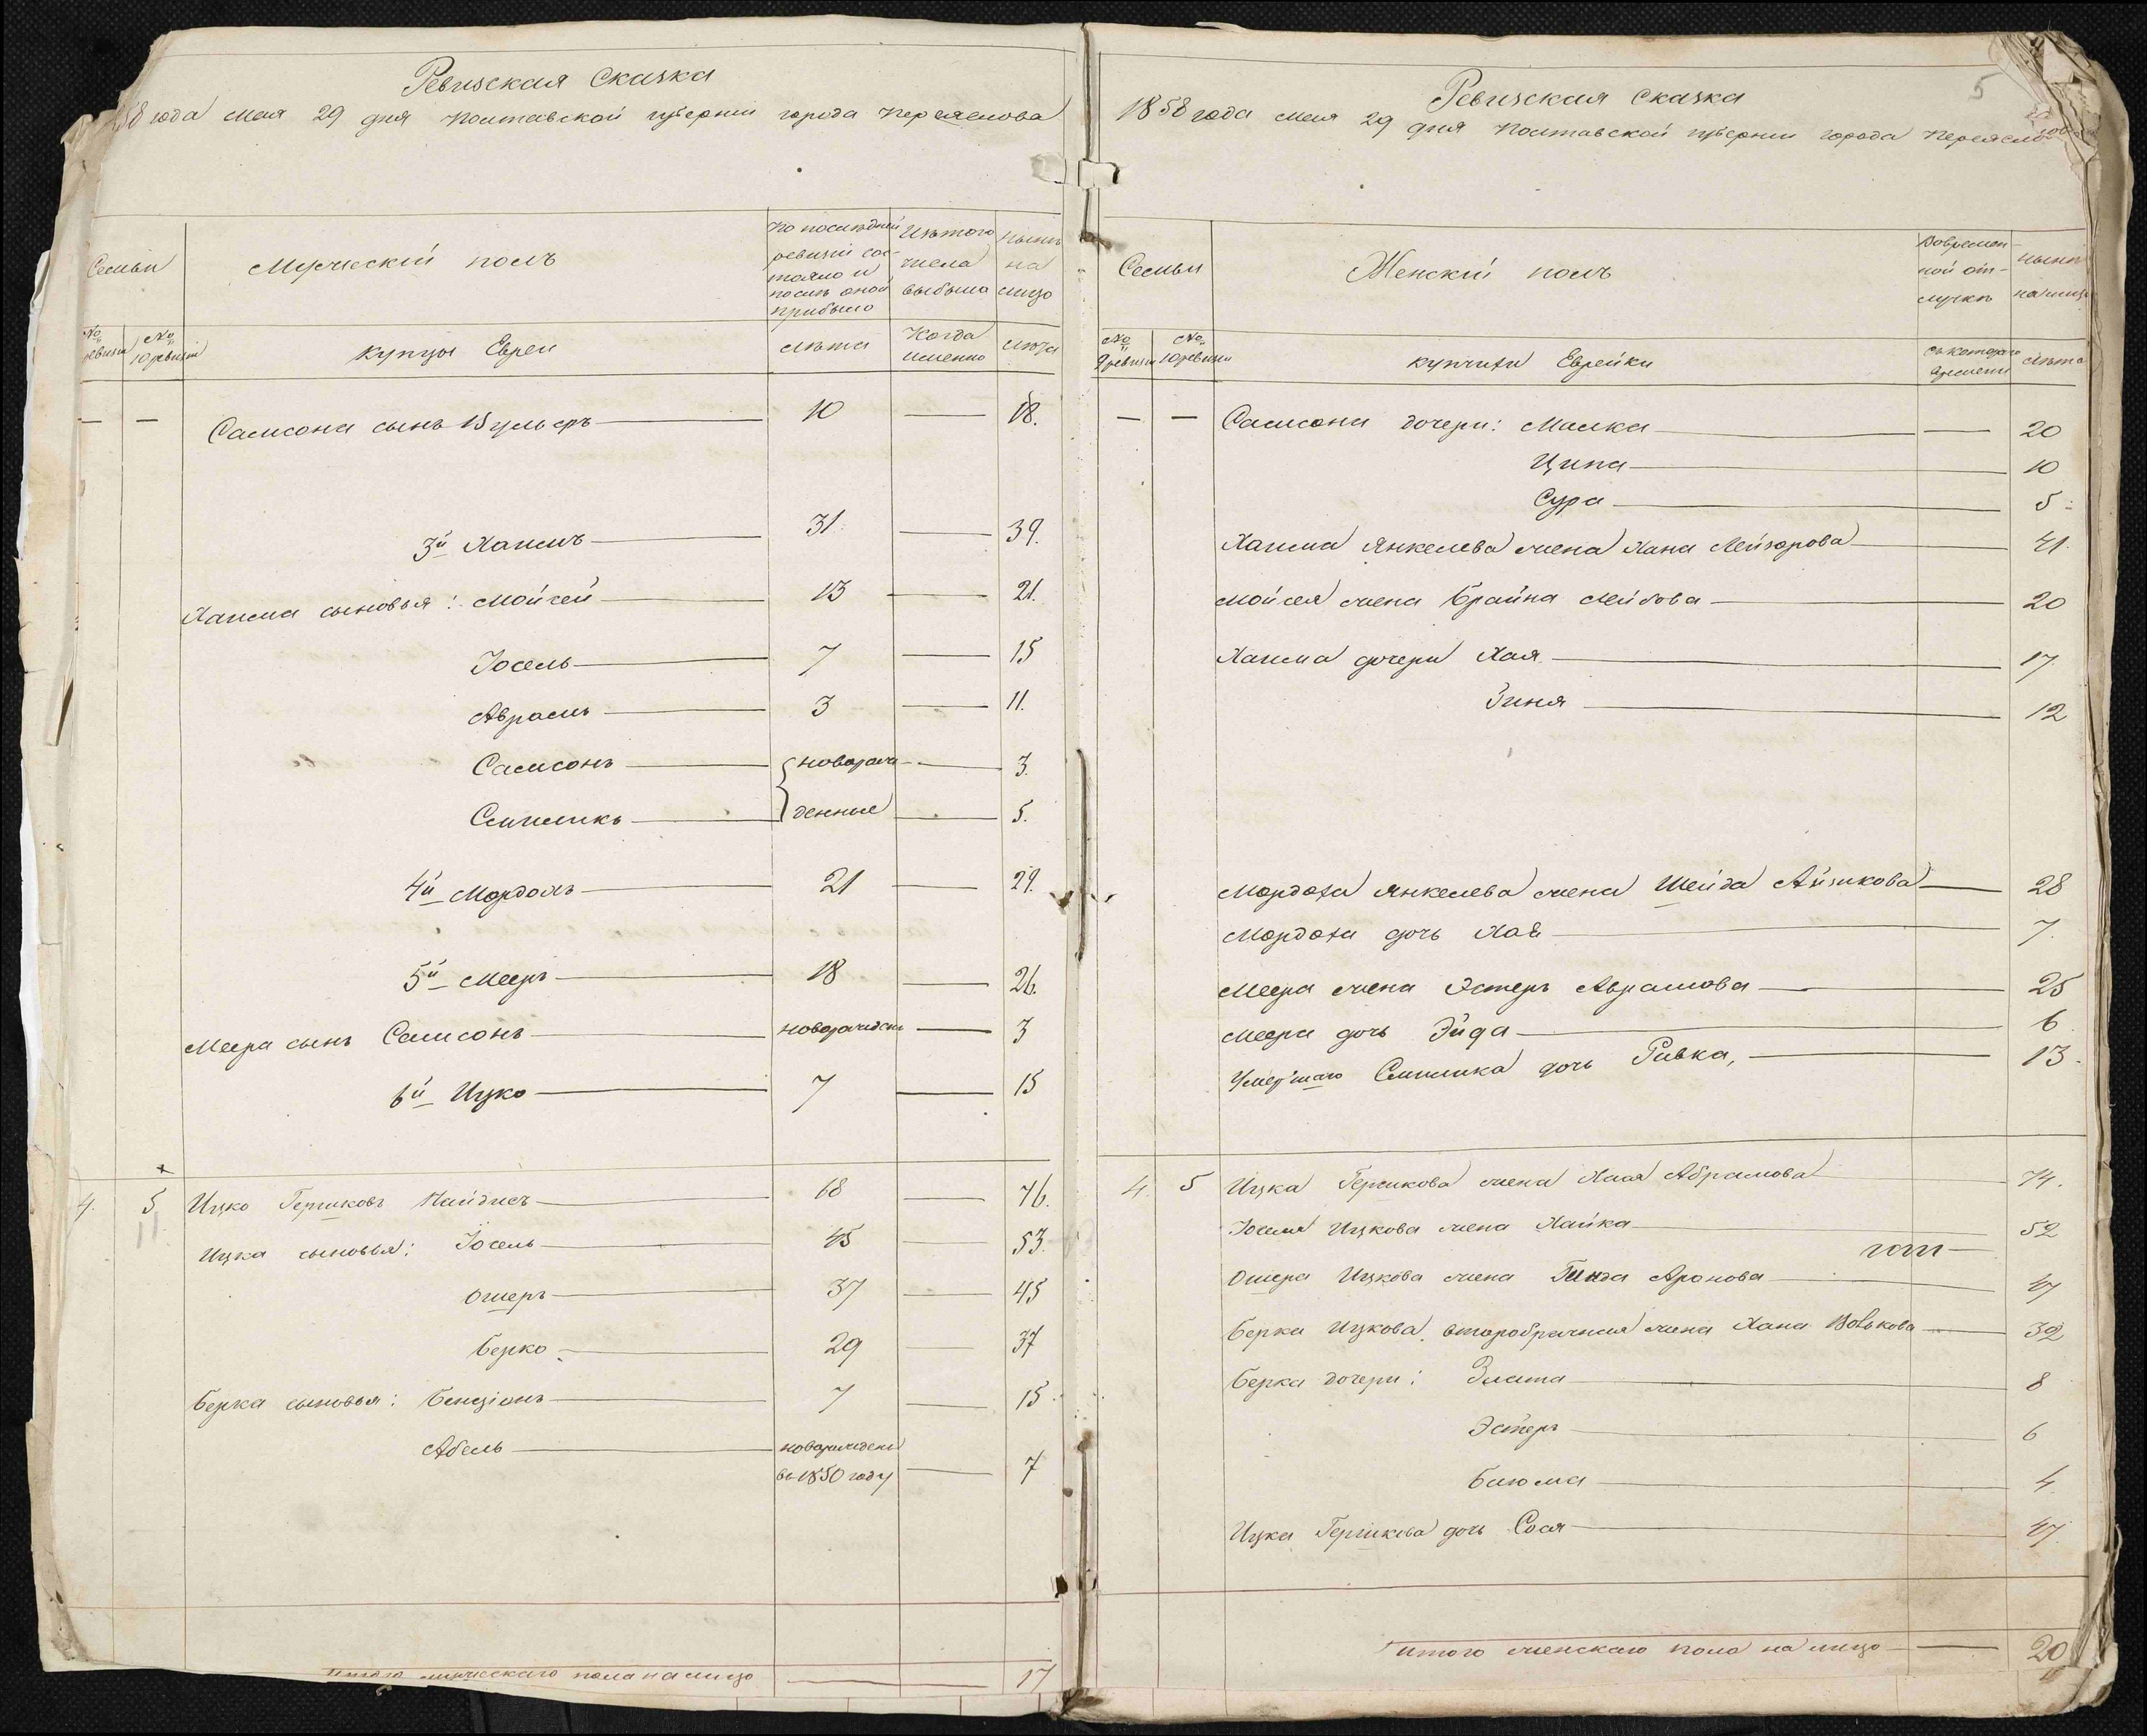 Ревизская Сказка
58 года Мая 29 дня Полтавской губернии города Переяслова
Семьи
Мужеский полъ
По последней ревизіи состояло и после оной прибыло
Изъ того числа выбыло
Ныне на лицо
№ ревизіи
№ 10 ревизіи
купцы Евреи
Лета
Когда именно
Лета
— — Самсона сынъ Вульфъ — 10 — 18.
3й Хаимъ — 31 — 39.
Хаима сыновья: Мойсей — 13 — 21.
Іосель — 7 — 15
Аврамъ — 3 — 11.
Самсонъ — новорож — 3.
Симшикъ — денные — 5.
4й Мордохъ — 21 — 29.
5й Мееръ — 18 — 26.
Меера сынъ Самсонъ — новорожден — 3
6й Ицко — 7 — 15
4. 5 Ицко Гершковъ Найдисъ — 68 — 76.
11
Ицка сыновья: Іосель — 45 — 53.
Ошеръ — 37 — 45
Берко — 29 — 37
Берка сыновья: Бенціонъ — 7 — 15.
Абель — новорожден — 7
въ 1850 году
Итого мужескаго пола на лицо — 17
5
Ревизская Сказка
1858 года Мая 29 дня Полтавской губернии города Переяслова
Семьи
Женскій полъ
Во временной отлучке
Ныне на лицо
№ 9 ревизіи
№ 10 ревизіи
купчихи Еврейки
Съ котораго времени
Лета
— — Самсона дочери: Малка — — 20
Ципа — 10
Сура — 5
Хаима Янкелева жена Хана Лейзорова — 41.
Мойсея жена Брайна Лейбова — 20
Хаима дочери Хая — 17
Зиня — 12
Мордоха Янкелева жена Шейда Айзикова — 28
Мордоха дочь Хая — 7.
Меера жена Эстеръ Аврамова — 25
Меера дочь Эйда — 6
Умершаго Симшика дочь Ривка, — 13.
4. 5 Ицка Гершкова жена Хая Абрамова — 74.
Іоселя Ицкова жена Хайка — 52
Ошера Ицкова жена Гинда Аронова — 47
Берка Ицкова второбрачная жена Хана Вовкова — 32
Берка дочери: Злата — 8
Эстеръ — 6
Блюма — 4
Ицка Гершкова дочь Сося — 47.
Итого женскаго пола на лицо — 20